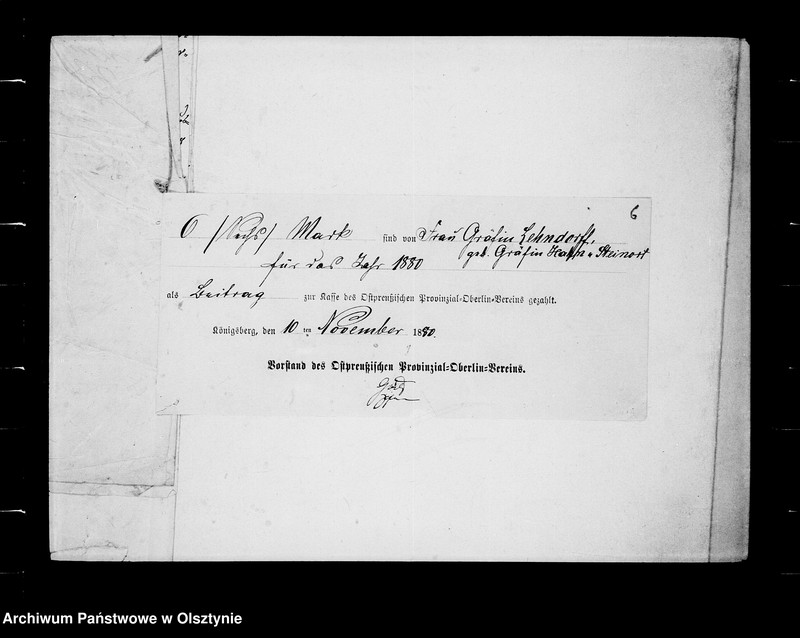 6
6 /Sechs/ Mark sind von Frau Gräfin Lehndorff,
geb. Gräfin Hahn a. Steinort
für das Jahr 1880
als Beitrag zur Kasse des Ostpreußischen Provinzial-Oberlin-Vereins gezahlt.
Königsberg, den 10 ten November 1880.
Vorstand des Ostpreußischen Provinzial-Oberlin-Vereins.
Archiwum Państwowe w Olsztynie